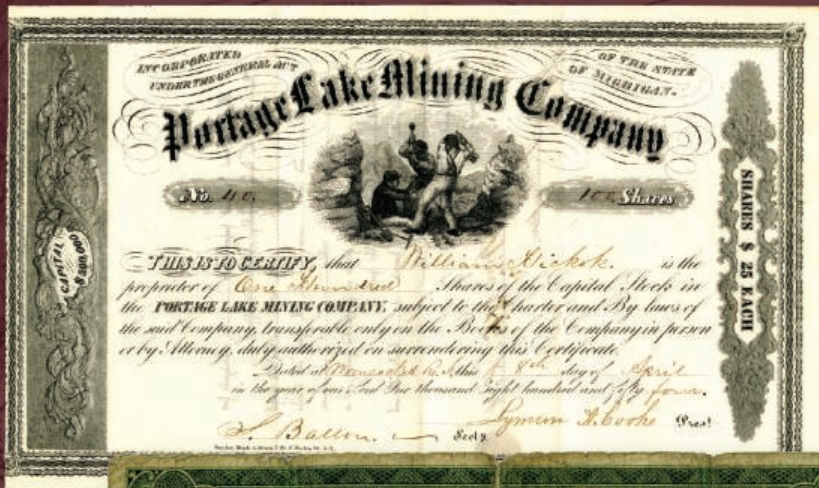 INCORPORATED
UNDER THE GENERAL ACT
OF THE STATE
OF MICHIGAN.
Portage Lake Mining Company
No. 40.
100 Shares
CAPITAL
SHARES $ 25 EACH
THIS IS TO CERTIFY, that William Hickok. is the
proprietor of One Hundred Shares of the Capital Stock in
the PORTAGE LAKE MINING COMPANY, subject to the Charter and By-laws of
the said Company, transferable only on the Books of the Company in person
or by Attorney, duly authorized on surrendering this Certificate.
Dated at Woonsocket R. I. this 8th day of April
in the year of our Lord One thousand eight hundred and fifty four.
S. Ballou. Secty.
Lyman A. Cooke Prest